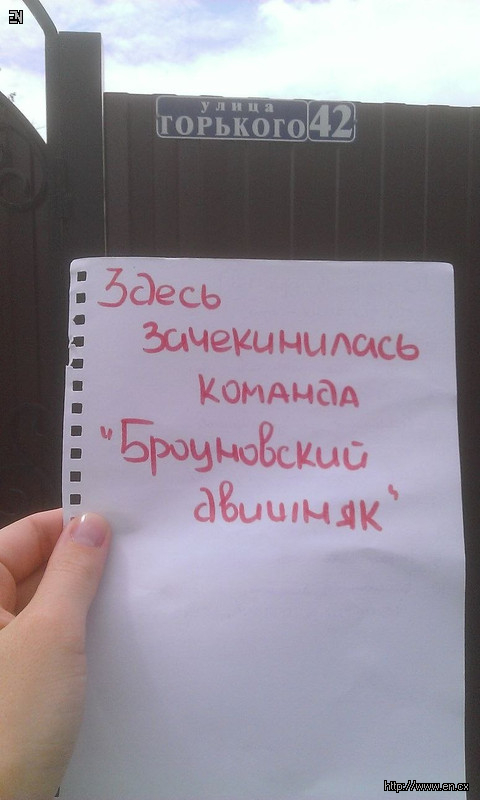 EN
улица
ГОРЬКОГО 42
Здесь
зачекинилась
команда
"Броуновский
движняк"
http://www.en.cx